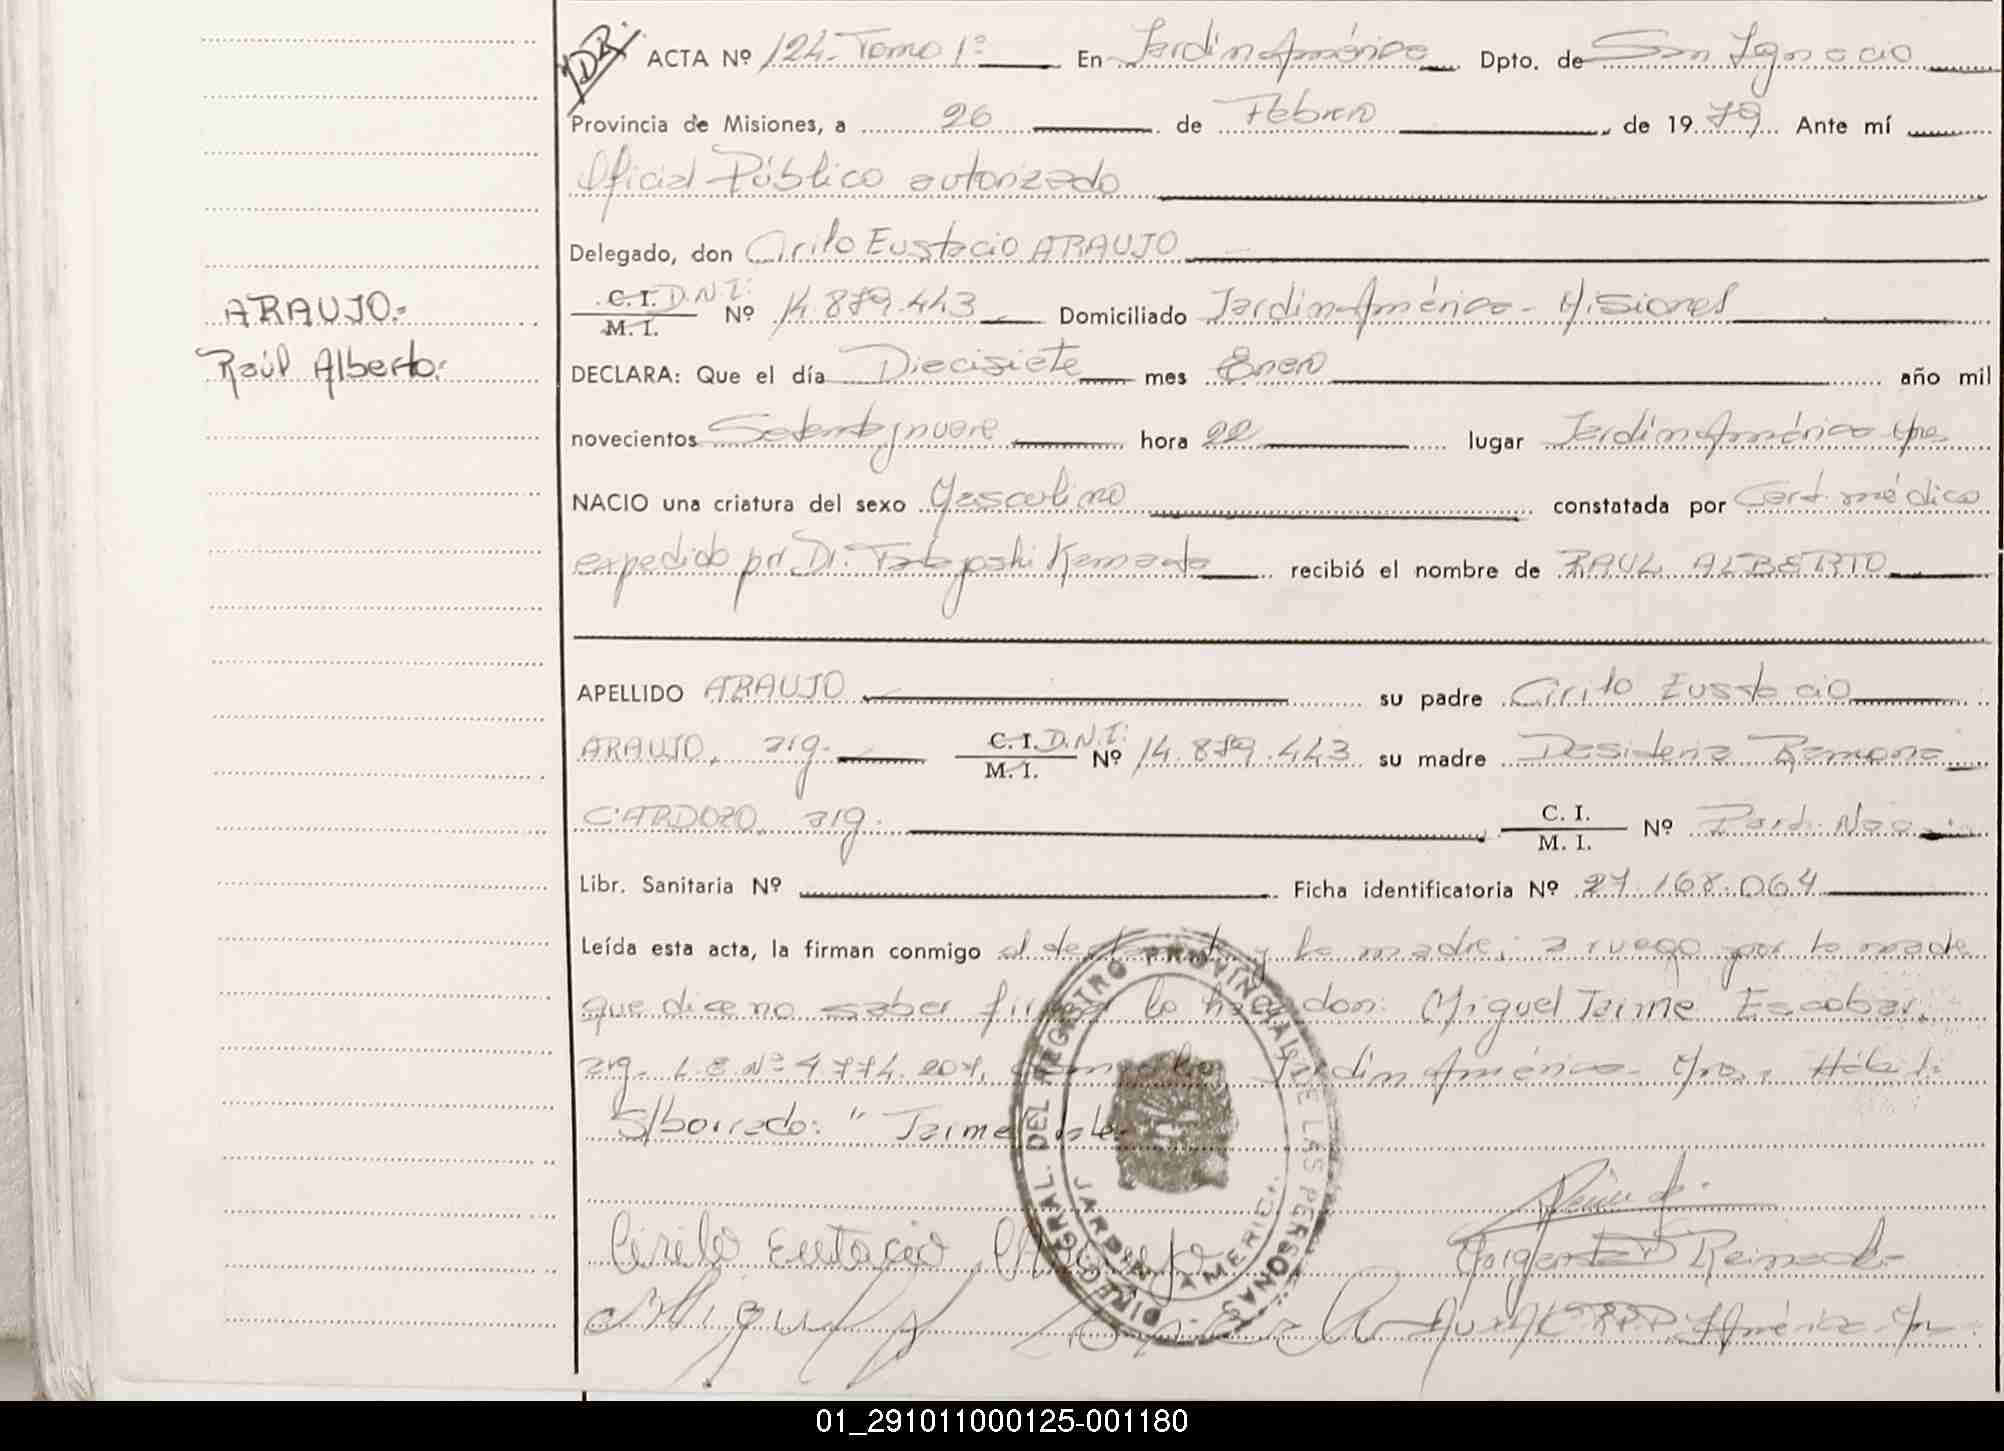 ACTA Nº 124- Tomo 1º En Jardín América Dpto. de San Ignacio
Provincia de Misiones, a 26 de Febrero de 1979 Ante mí
Oficial Público autorizado
Delegado, don Cirilo Eustacio ARAUJO
ARAUJO.-
Raúl Alberto.-
C. I. D.N.I.
M. I. Nº 14.879.443 Domiciliado Jardín América - Misiones
DECLARA: Que el día Diecisiete mes Enero año mil
novecientos Setentaynueve hora 22 lugar Jardín América
NACIO una criatura del sexo Masculino constatada por Cert. médico
expedido por Dr. recibió el nombre de RAUL ALBERTO
APELLIDO ARAUJO su padre Cirilo Eustacio
ARAUJO, arg. C. I. D.N.I. M. I. Nº 14.879.443 su madre Desideria Ramona
CARDOZO, arg. C. I. M. I. Nº
Libr. Sanitaria Nº Ficha identificatoria Nº 27.168.064
Leída esta acta, la firman conmigo el y la madre; a ruego por la madre
que dice no saber firmar lo hace don: Miguel Jaime Escobar,
arg. L E Nº Jardín América-
S/borrado: "Jaime" Vale
DIREC. GRAL. DEL REGISTRO PROVINCIAL DE LAS PERSONAS
JARDIN AMERICA
Cirilo Eutacio Araujo
Miguel J
01_291011000125-001180